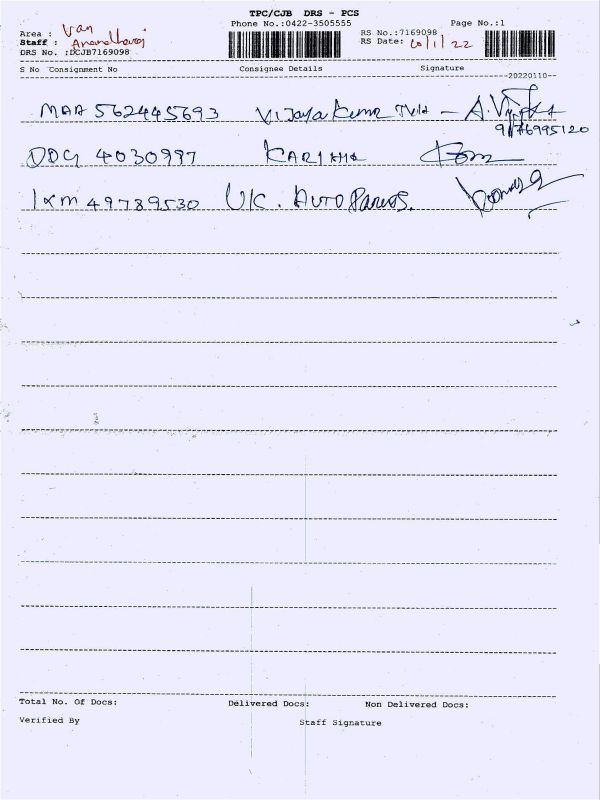 TPC/CJB DRS - PCS
Phone No.:0422-3505555 Page No.:1
Area : Van RS No.:7169098
Staff : Anandharaj RS Date: 10/1/22
DRS No. :DCJB7169098
S No Consignment No Consignee Details Signature
--20220110--
MAA 562445693 Vijaya Kumar TVH -
DDG 4030997
IXM 49789530 UK. AUTO
Total No. Of Docs: Delivered Docs: Non Delivered Docs:
Verified By Staff Signature